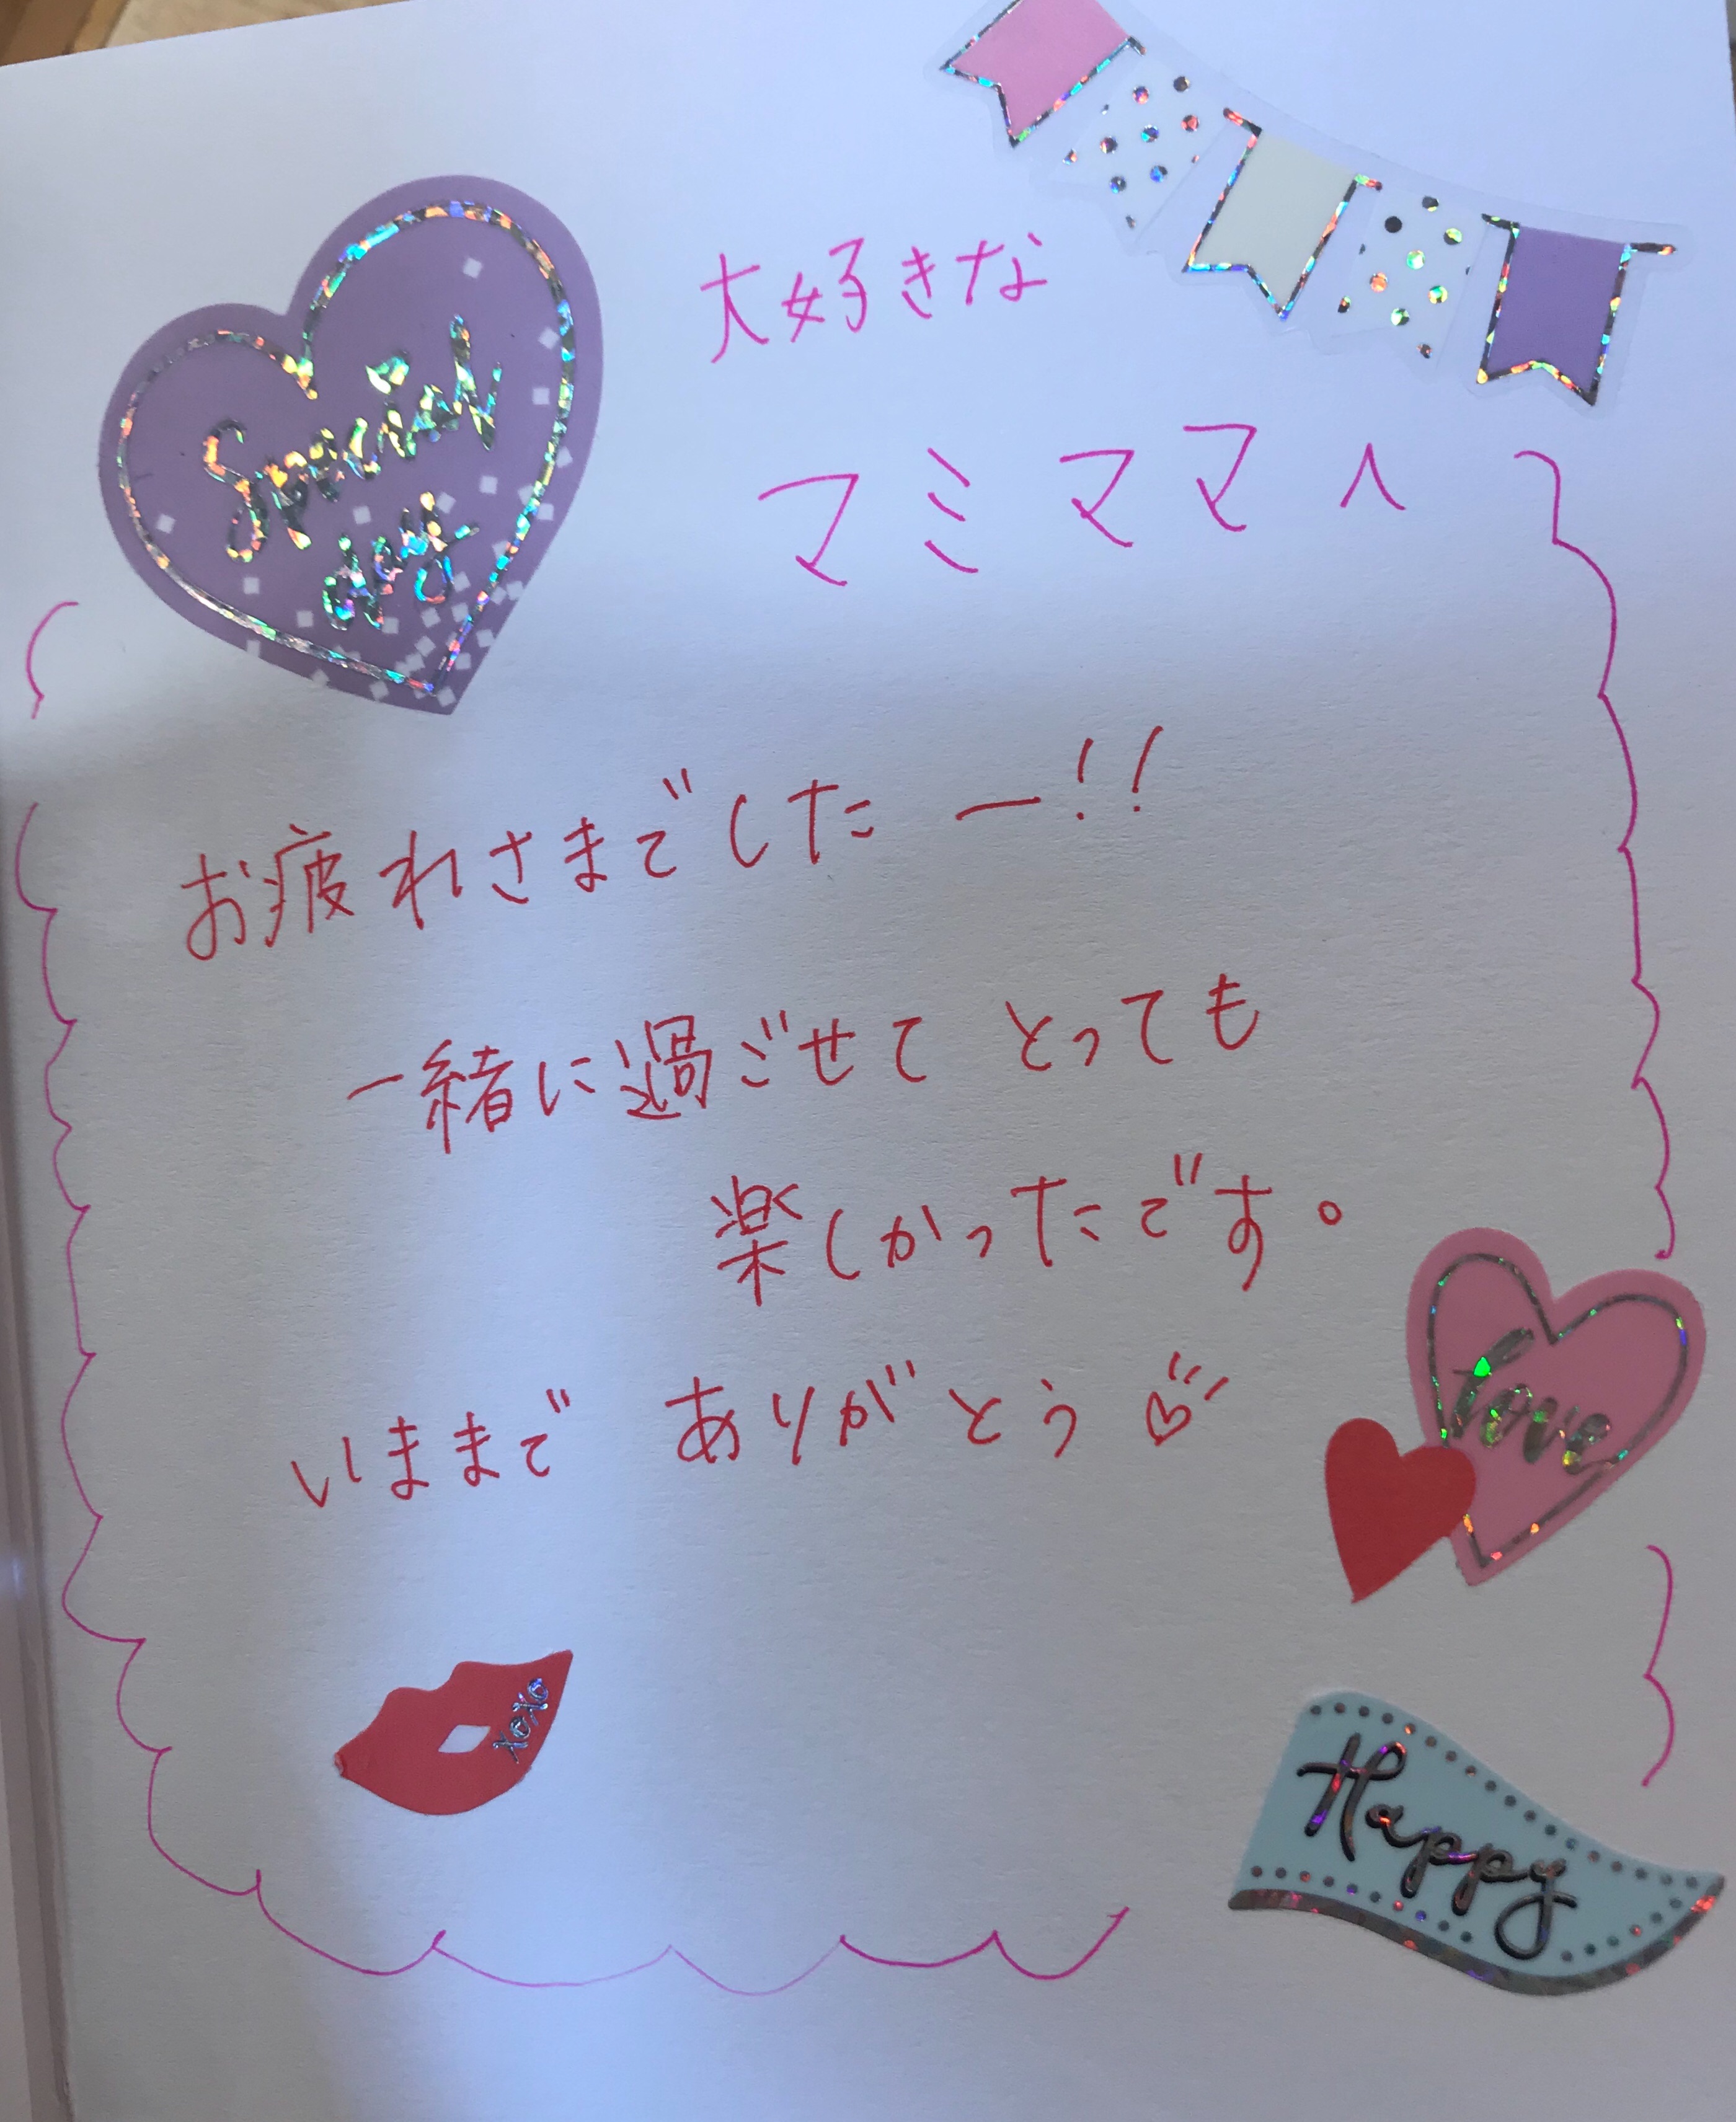 Special
day
大好きな
マミママへ
お疲れさまでしたー!!
一緒に過ごせて とっても
楽しかったです。
いままで ありがとう♡
love
XOXO
Happy